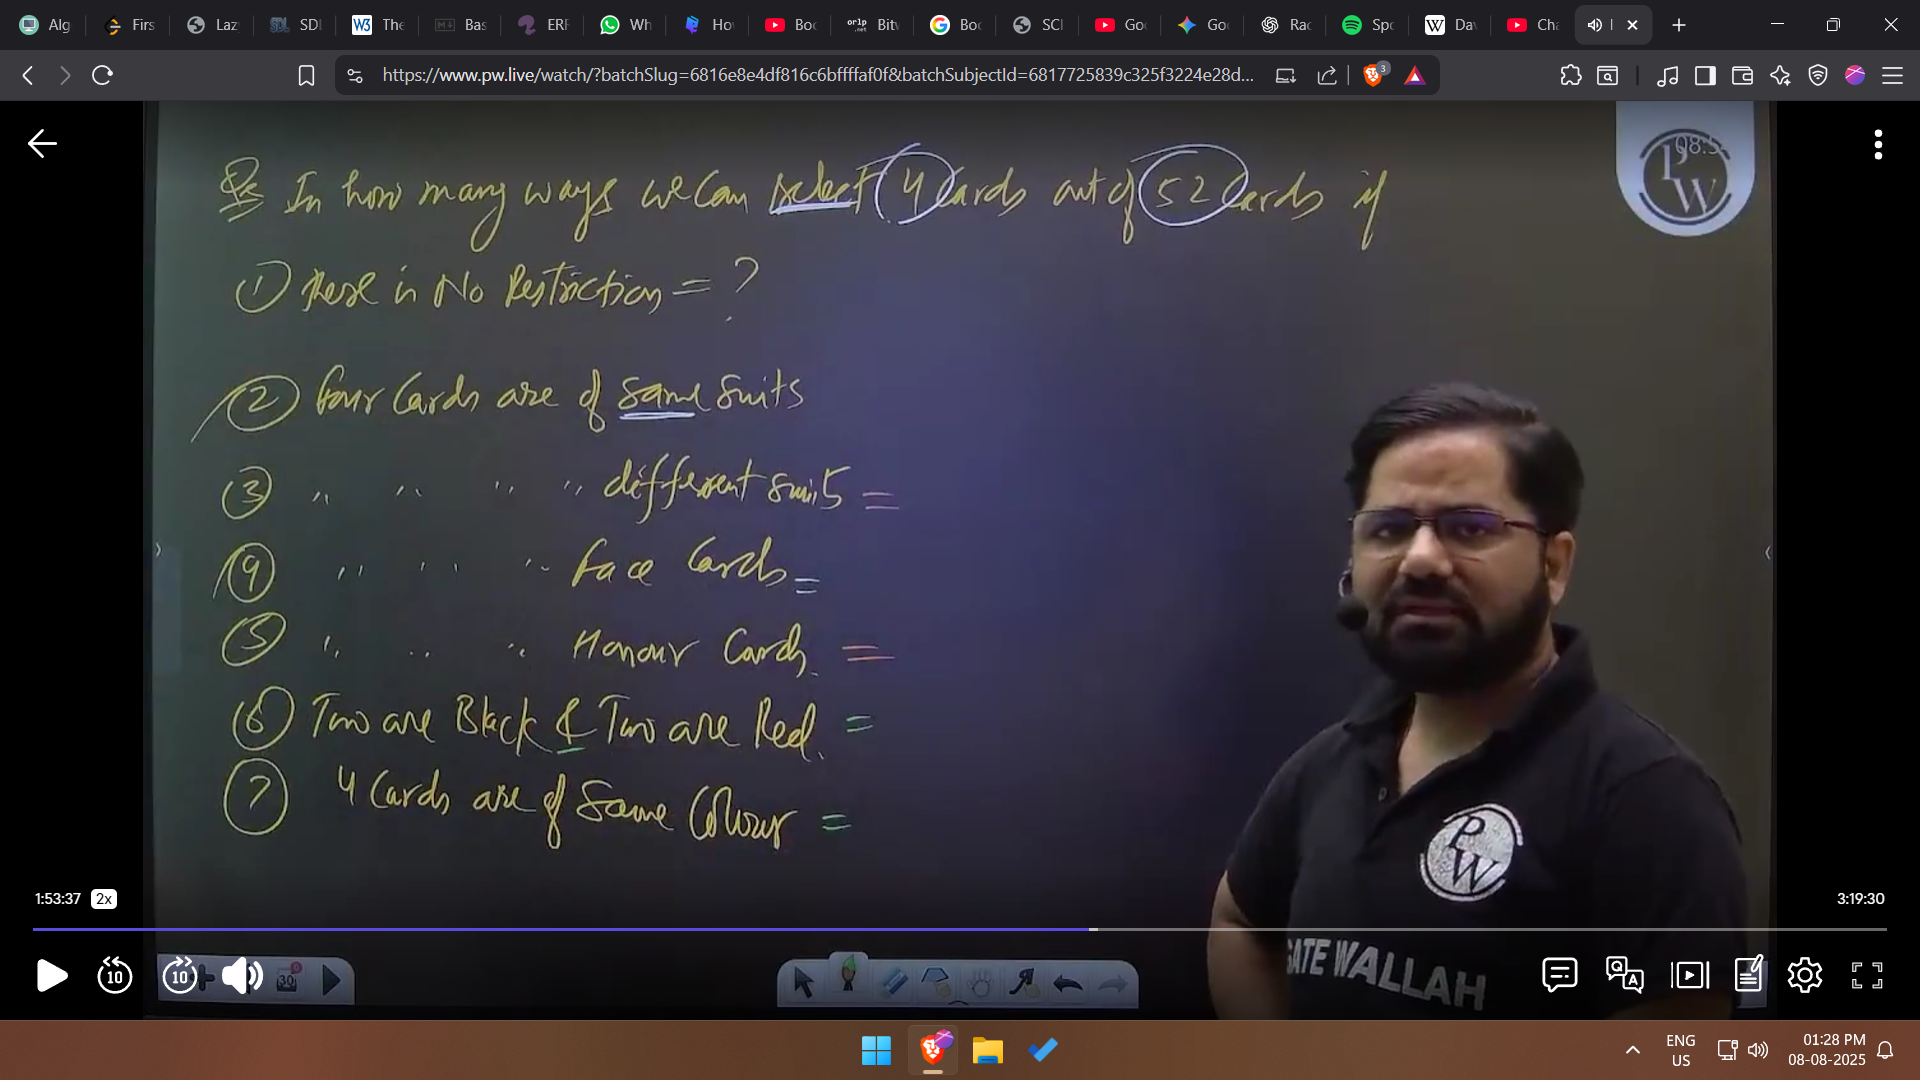 Alg
Firs
Laz
SDI
The
Bas
ERF
Wh
Hov
Boc
Bitw
Boc
SCI
Goo
Goo
Rac
Spo
Dav
Cha
https://www.pw.live/watch/?batchSlug=6816e8e4df816c6bffffaf0f&batchSubjectId=6817725839c325f3224e28d...
3
08:5
PW
Qs In how many ways we can select 4 Cards out of 52 Cards if
① There is No Restriction = ?
② Four Cards are of same suits
③ " " " " different suits =
④ " " " Face Cards =
⑤ " " " Honour Cards =
⑥ Two are Black & Two are Red =
⑦ 4 Cards are of Same Colour =
PW
GATE WALLAH
1:53:37 2x
3:19:30
10 10
30
ENG
US
01:28 PM
08-08-2025